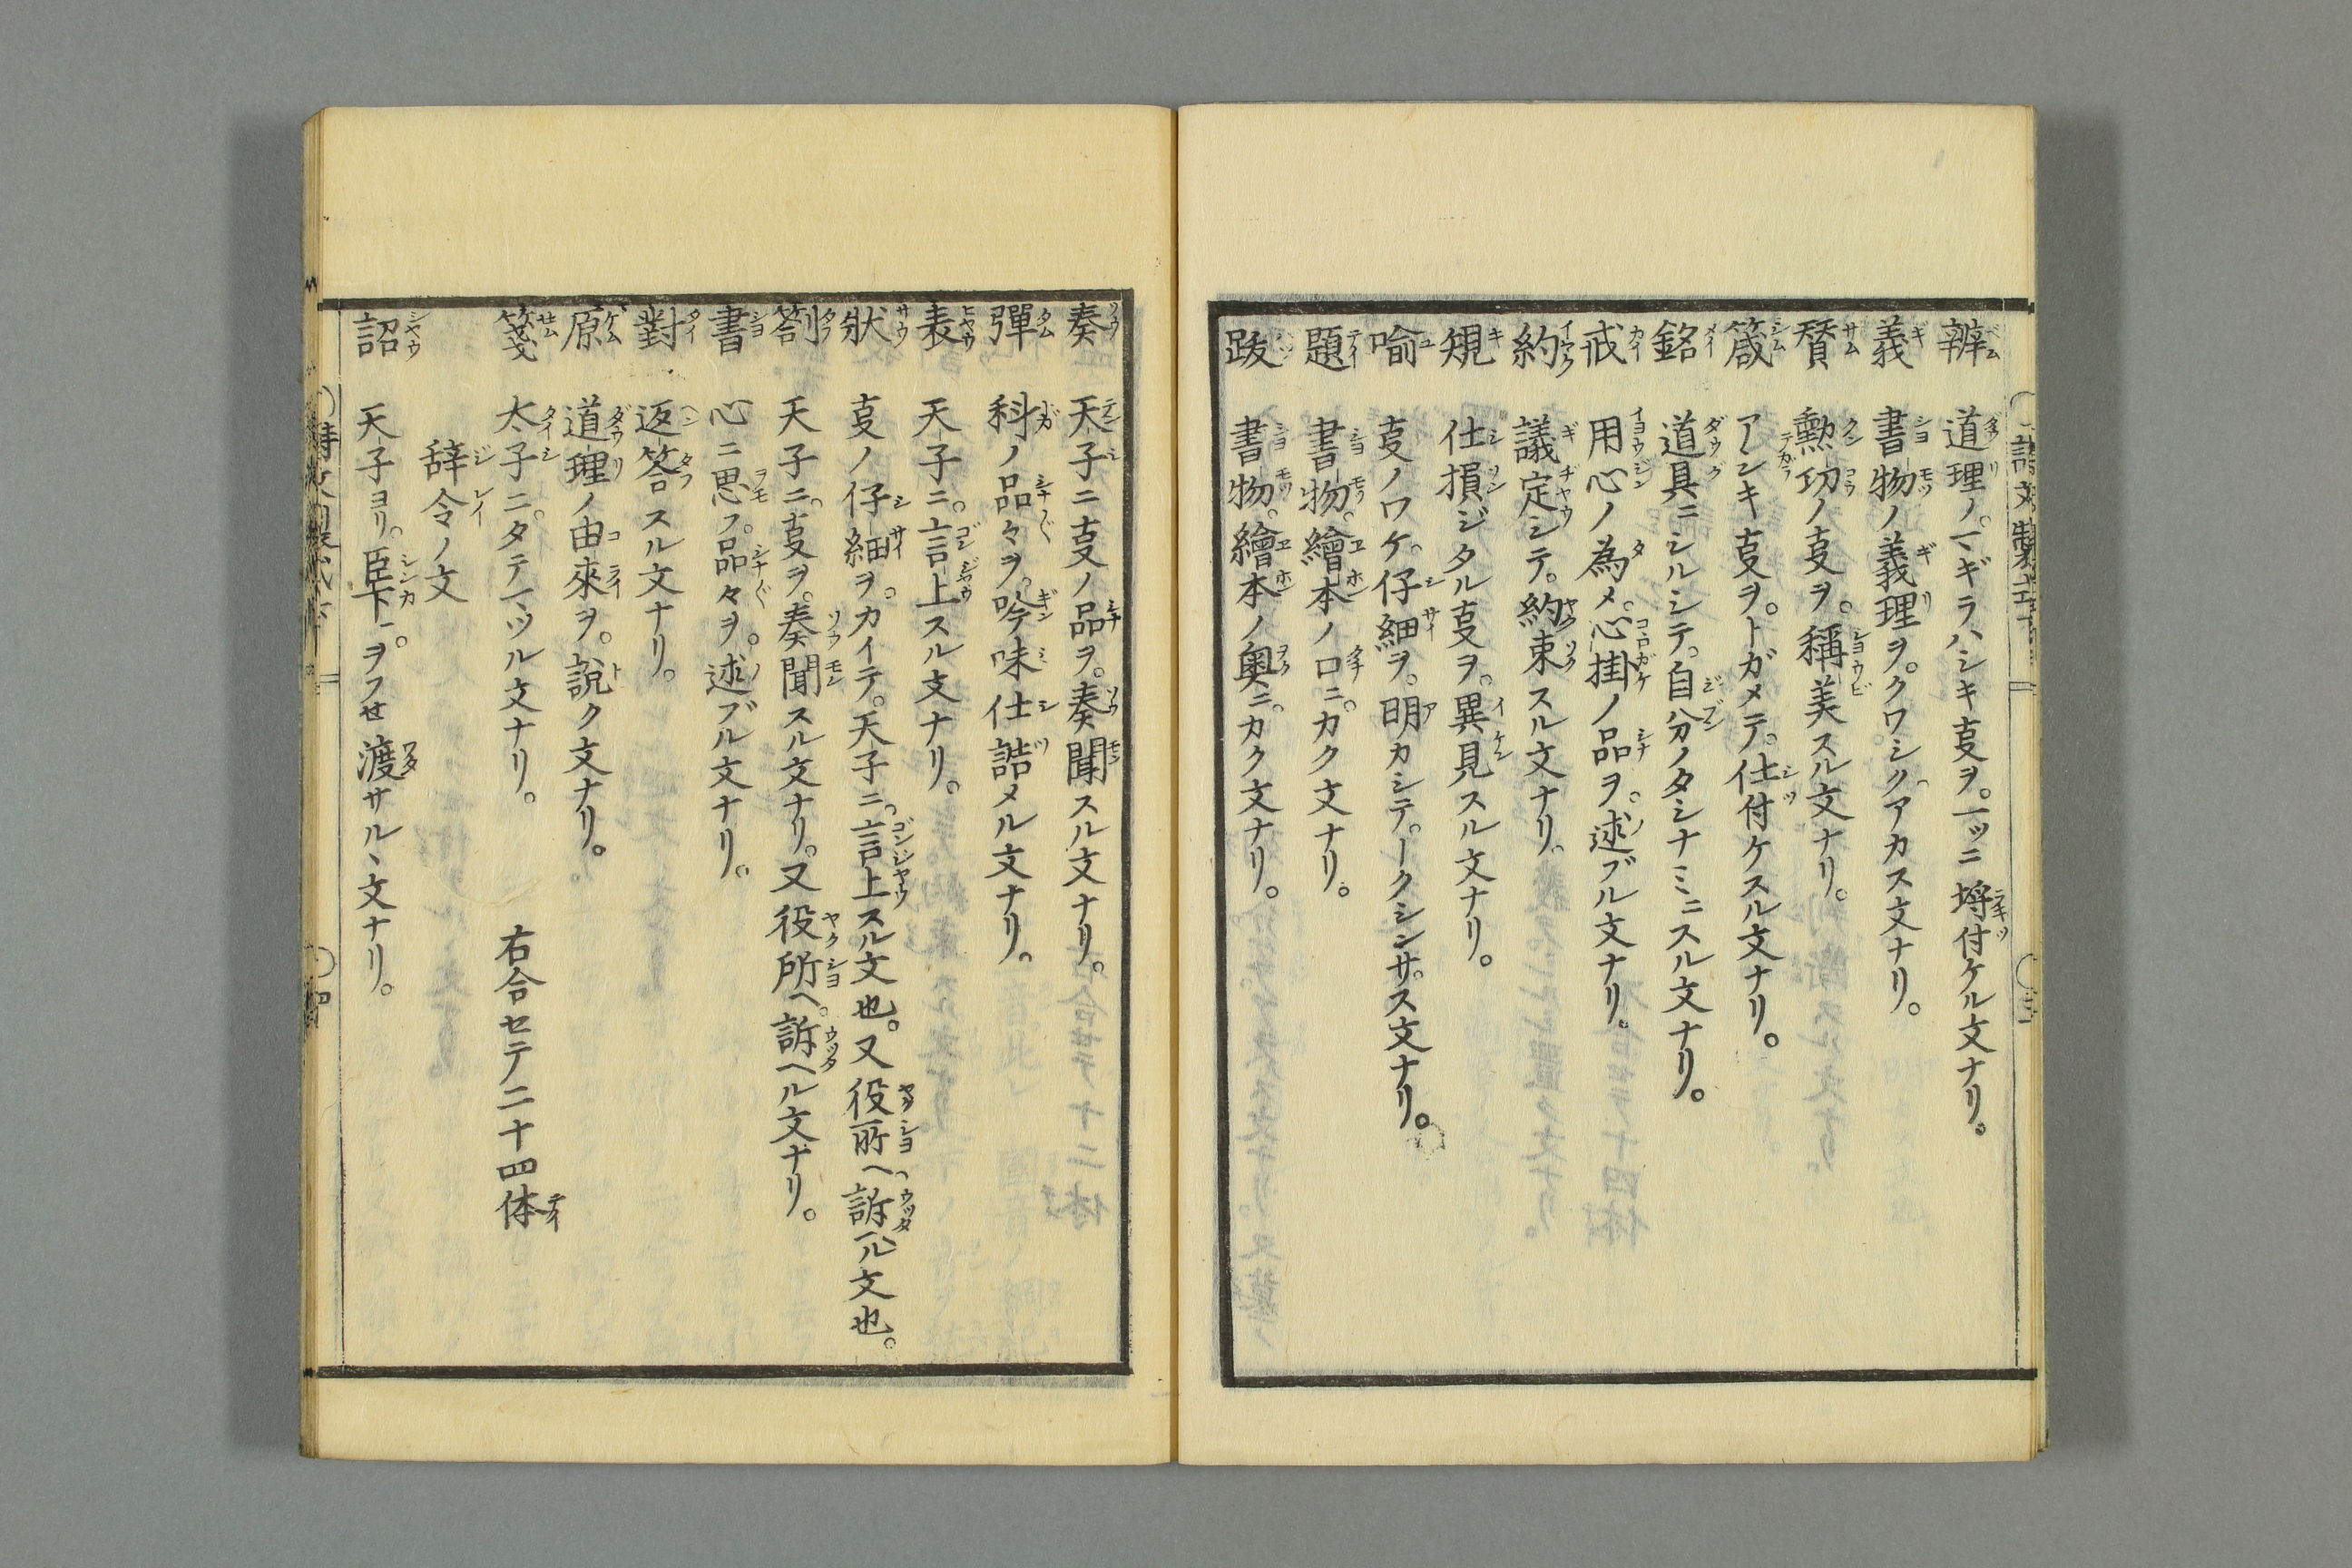 辨 道理ノ。マギラハシキ叓ヲ。一ッニ埒付ケル文ナリ。
義 書物ノ義理ヲ。クワシク。アカス文ナリ。
賛 勲功ノ叓ヲ。稱美スル文ナリ。
箴 アシキ叓ヲ。トガメテ。仕付ケスル文ナリ。
銘 道具ニシルシテ。自分ノタシナミニスル文ナリ。
戒 用心ノ為メ。心掛ノ品ヲ。述ブル文ナリ。
約 議定シテ。約束スル文ナリ。
規 仕損ジタル叓ヲ。異見スル文ナリ。
喻 叓ノワケ。仔細ヲ。明カシテ。トクシンサス文ナリ。
題 書物。繪本ノ口ニ。カク文ナリ。
跋 書物。繪本ノ奥ニ。カク文ナリ。
奏 天子ニ叓ノ品ヲ。奏聞スル文ナリ。
彈 科ノ品々ヲ。吟味仕詰メル文ナリ。
表 天子ニ。言上スル文ナリ。
狀 叓ノ仔細ヲ。カイテ。天子ニ。言上スル文也。又役所ヘ。訴ヘル文也。
劄 天子ニ。叓ヲ。奏聞スル文ナリ。又役所ヘ。訴ヘル文ナリ。
書 心ニ思フ。品々ヲ。述ブル文ナリ。
對 返答スル文ナリ。
原 道理ノ由來ヲ。說ク文ナリ。
箋 太子ニ。タテマツル文ナリ。 右合セテ二十四体
辞令ノ文
詔 天子ヨリ。臣下ニ。ヲフせ渡サルヽ文ナリ。